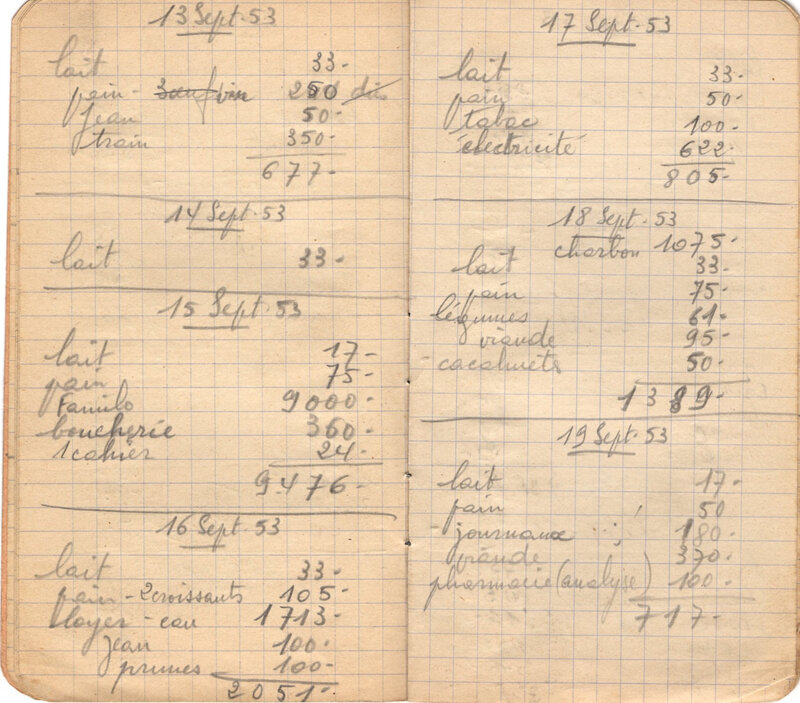 13 Sept. 53
lait 33-
pain - vin
Jean 50-
train 350-
677-
14 Sept. 53
lait 33-
15 Sept. 53
lait 17-
pain 75-
Familo 9000-
boucherie 360-
1 cahier 24-
9.476-
16 Sept. 53
lait 33-
pain - 2 croissants 105-
loyer - eau 1713-
Jean 100-
prunes 100-
2051-
17 Sept. 53
lait 33-
pain 50-
tabac 100-
électricité 622-
805-
18 Sept. 53
charbon 1075-
lait 33-
pain 75-
légumes 61-
viande 95-
- cacahuets 50-
1389-
19 Sept. 53
lait 17-
pain 50
- journaux 180-
viande 370-
pharmacie (analyse) 100-
717-